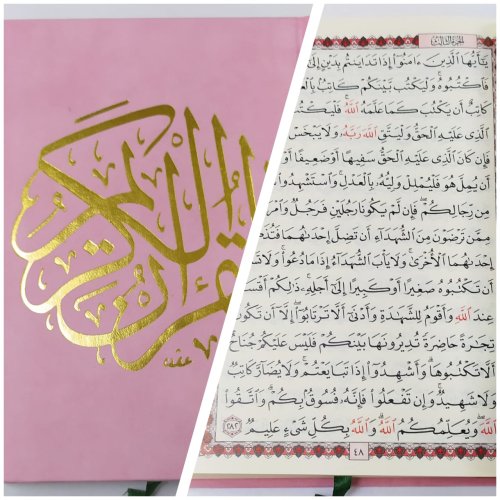 القرآن الكريم
الجزء الثالث
يَٰٓأَيُّهَا ٱلَّذِينَ ءَامَنُوٓا۟ إِذَا تَدَايَنتُم بِدَيْنٍ إِلَىٰٓ
فَٱكْتُبُوهُ ۚ وَلْيَكْتُب بَّيْنَكُمْ كَاتِبٌۢ بِٱلْعَدْلِ
كَاتِبٌ أَن يَكْتُبَ كَمَا عَلَّمَهُ ٱللَّهُ ۚ فَلْيَكْتُبْ
ٱلَّذِى عَلَيْهِ ٱلْحَقُّ وَلْيَتَّقِ ٱللَّهَ رَبَّهُۥ وَلَا يَبْخَسْ
فَإِن كَانَ ٱلَّذِى عَلَيْهِ ٱلْحَقُّ سَفِيهًا أَوْ ضَعِيفًا
أَن يُمِلَّ هُوَ فَلْيُمْلِلْ وَلِيُّهُۥ بِٱلْعَدْلِ ۚ وَٱسْتَشْهِدُوا۟
مِن رِّجَالِكُمْ ۖ فَإِن لَّمْ يَكُونَا رَجُلَيْنِ فَرَجُلٌ
مِمَّن تَرْضَوْنَ مِنَ ٱلشُّهَدَآءِ أَن تَضِلَّ إِحْدَىٰهُمَا
إِحْدَىٰهُمَا ٱلْأُخْرَىٰ ۚ وَلَا يَأْبَ ٱلشُّهَدَآءُ إِذَا مَا دُعُوا۟ ۚ وَلَا
أَن تَكْتُبُوهُ صَغِيرًا أَوْ كَبِيرًا إِلَىٰٓ أَجَلِهِۦ ۚ ذَٰلِكُمْ
عِندَ ٱللَّهِ وَأَقْوَمُ لِلشَّهَٰدَةِ وَأَدْنَىٰٓ أَلَّا تَرْتَابُوٓا۟ ۖ إِلَّآ أَن تَكُونَ
تِجَٰرَةً حَاضِرَةً تُدِيرُونَهَا بَيْنَكُمْ فَلَيْسَ عَلَيْكُمْ جُنَاحٌ
أَلَّا تَكْتُبُوهَا ۗ وَأَشْهِدُوٓا۟ إِذَا تَبَايَعْتُمْ ۚ وَلَا يُضَآرَّ كَاتِبٌ
وَلَا شَهِيدٌ ۚ وَإِن تَفْعَلُوا۟ فَإِنَّهُۥ فُسُوقٌۢ بِكُمْ ۗ وَٱتَّقُوا۟
ٱللَّهَ ۖ وَيُعَلِّمُكُمُ ٱللَّهُ ۗ وَٱللَّهُ بِكُلِّ شَىْءٍ عَلِيمٌ ٢٨٢
٤٨